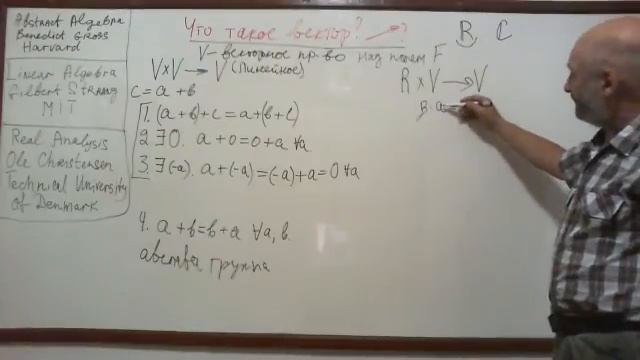 Abstract Algebra
Benedict Gross
Harvard
Linear Algebra
Gilbert Strang
MIT
Real Analysis
Ole Christensen
Technical University
of Denmark
Что такое вектор? → ?
V - векторное пр-во над полем F
(Линейное)
V×V → V
c = a + b
1. (a+b)+c = a+(b+c)
2. ∃0. a+0=0+a ∀a
3. ∃(-a). a+(-a)=(-a)+a=0 ∀a
4. a+b=b+a ∀a,b.
абелева группа
R C
R×V → V